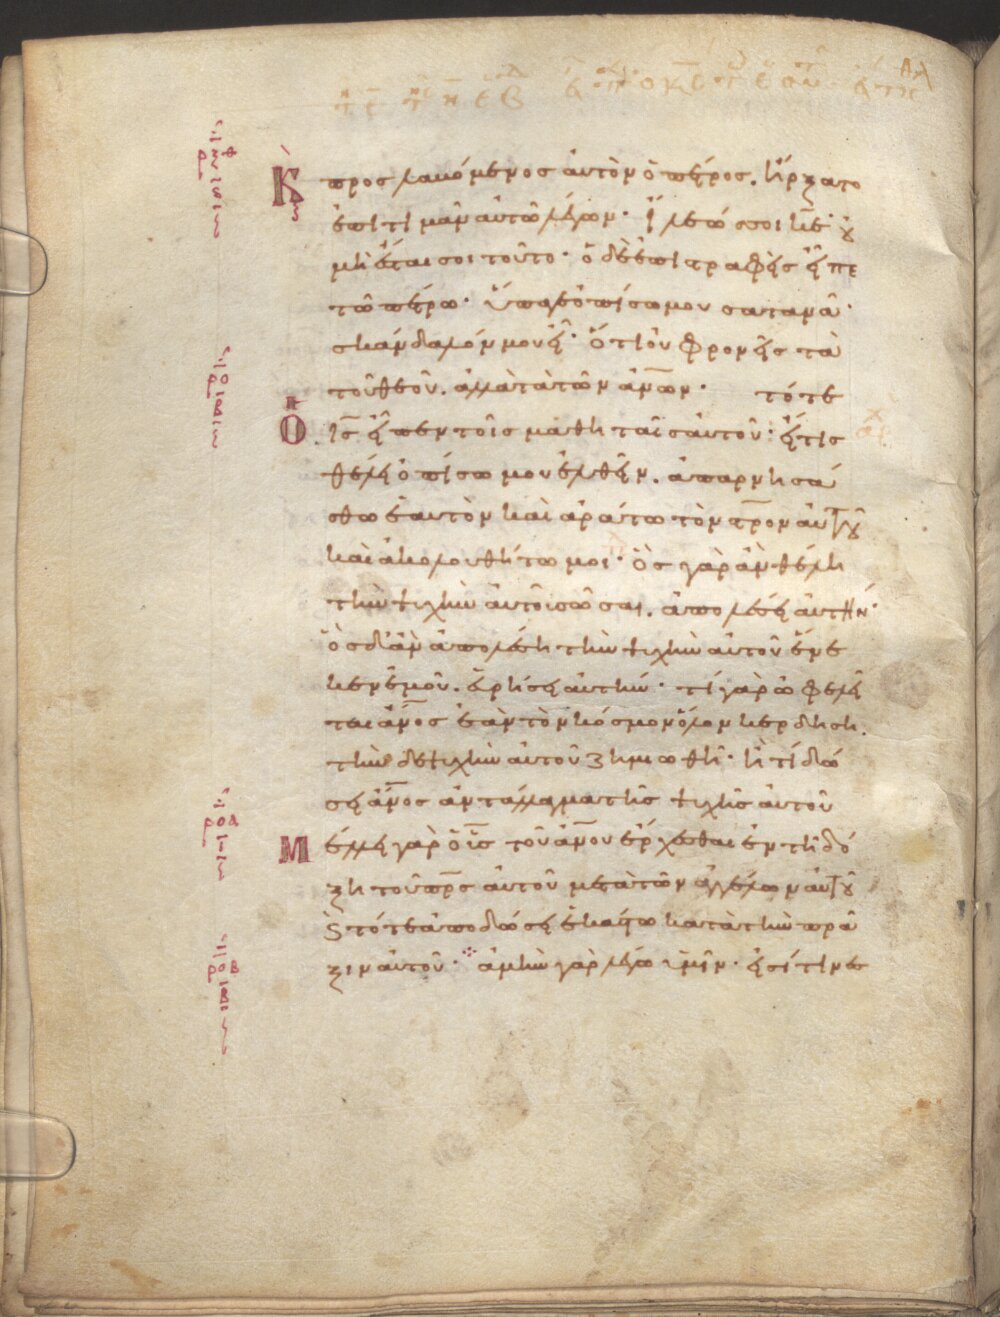 Κ προσλαβόμενος αὐτὸν ὁ πέτρος. ἤρξατο
ἐπιτιμᾶν αὐτῶ λέγων· ἵλεώ σοι κε· οὐ
μὴ ἔσται σοι τοῦτο· ὁ δὲ ἐπιστραφεὶς εἶπε
τῶ πέτρω· ὕπαγε ὀπίσω μου σατανᾶ·
σκάνδαλόν μου εἶ· ὅτι οὐ φρονεῖς τὰ
τοῦ θεοῦ. ἀλλὰ τὰ τῶν ἀνων· τότε
Ὁ ις εἶπεν τοῖς μαθηταῖς αὐτοῦ· εἴ τις
θέλει ὀπίσω μου ἐλθεῖν. ἀπαρνησά
σθω ἑαυτὸν καὶ ἀράτω τὸν στρον αὐτοῦ
καὶ ἀκολουθήτω μοι· ὃς γὰρ ἂν θέλη
τὴν ψυχὴν αὐτοῦ σῶσαι. ἀπολέσει αὐτήν·
ὃς δ' ἂν ἀπολέση τὴν ψυχὴν αὐτοῦ ἕνε
κεν ἐμοῦ. εὑρήσει αὐτήν· τί γὰρ ὠφελεῖ
ται ἀνος ἐὰν τὸν κόσμον ὅλον κερδήση.
τὴν δὲ ψυχὴν αὐτοῦ ζημιωθῆ· ἢ τί δώ
σει ἀνος ἀντάλλαγμα τῆς ψυχῆς αὐτοῦ
Μ έλλει γὰρ ὁ υἱς τοῦ ἀνου ἔρχεσθαι ἐν τῆ δό
ξη τοῦ πρς αὐτοῦ μετὰ τῶν ἀγγέλων αὐτοῦ
ϗ τότε ἀποδώσει ἑκάστω κατὰ τὴν πρᾶ
ξιν αὐτοῦ· ἀμὴν γὰρ λέγω ὑμῖν· εἰσί τινες